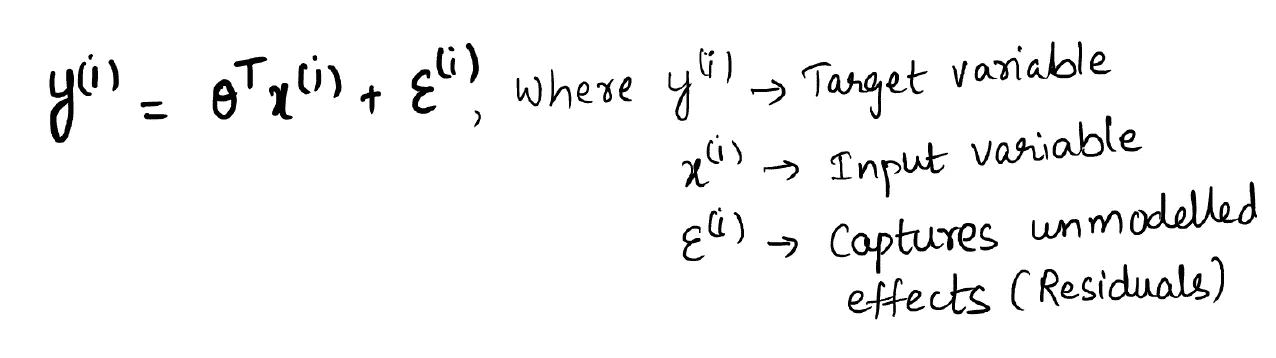 y⁽ⁱ⁾ = θᵀx⁽ⁱ⁾ + ε⁽ⁱ⁾, where y⁽ⁱ⁾ → Target variable
x⁽ⁱ⁾ → Input variable
ε⁽ⁱ⁾ → Captures unmodelled
effects (Residuals)